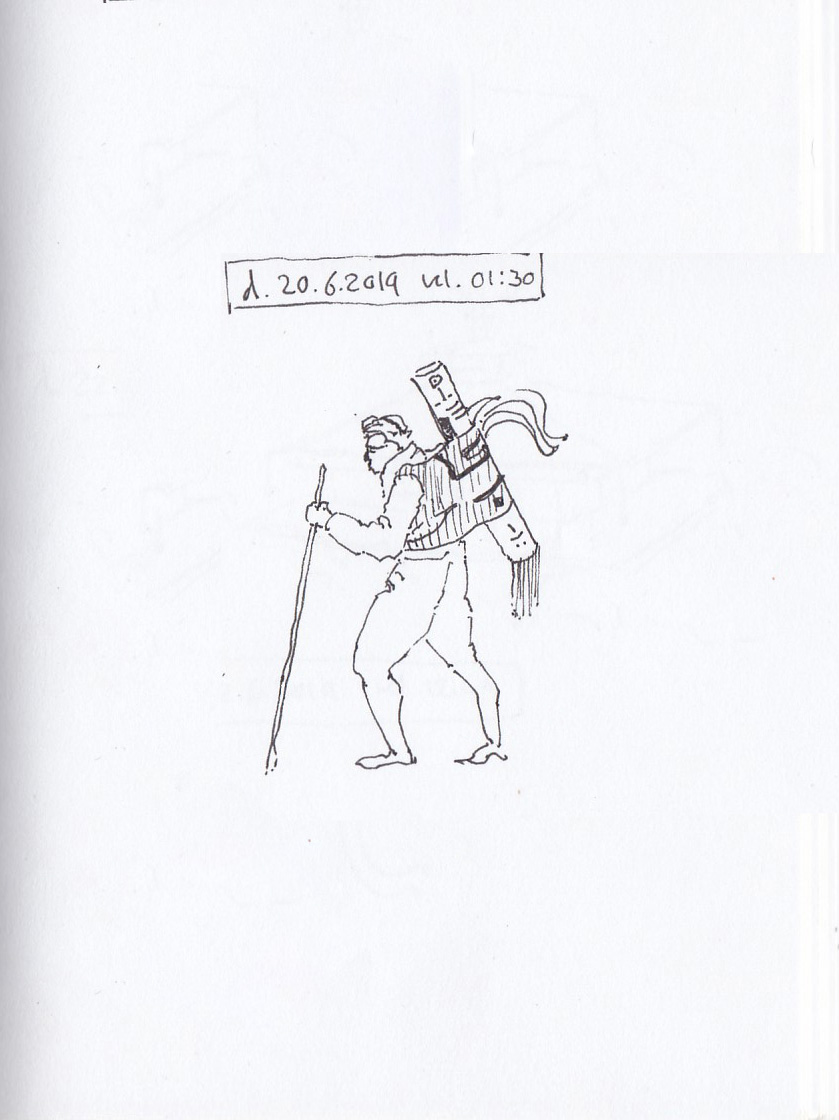 d. 20.6.2019 kl. 01:30